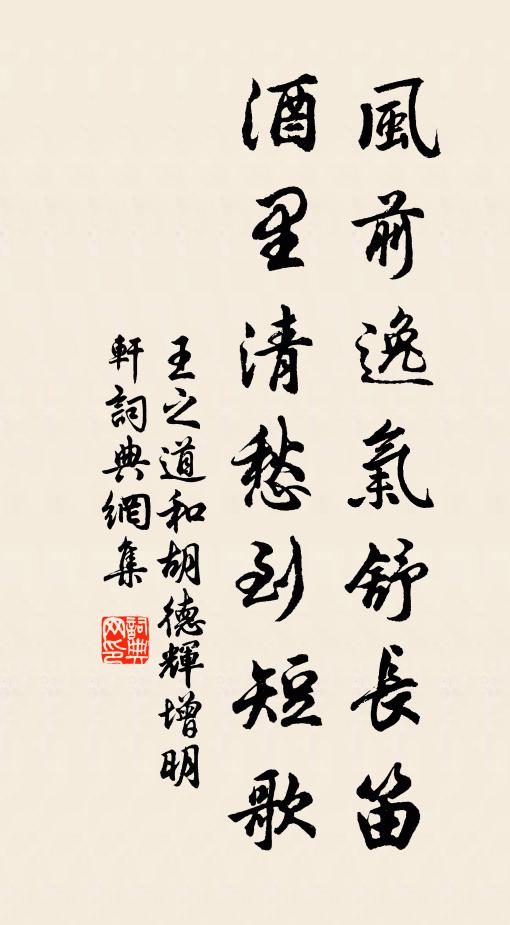 風前逸氣舒長笛
酒里清愁到短歌
王之道和胡德輝增明
軒詞典網集
詞典
网印